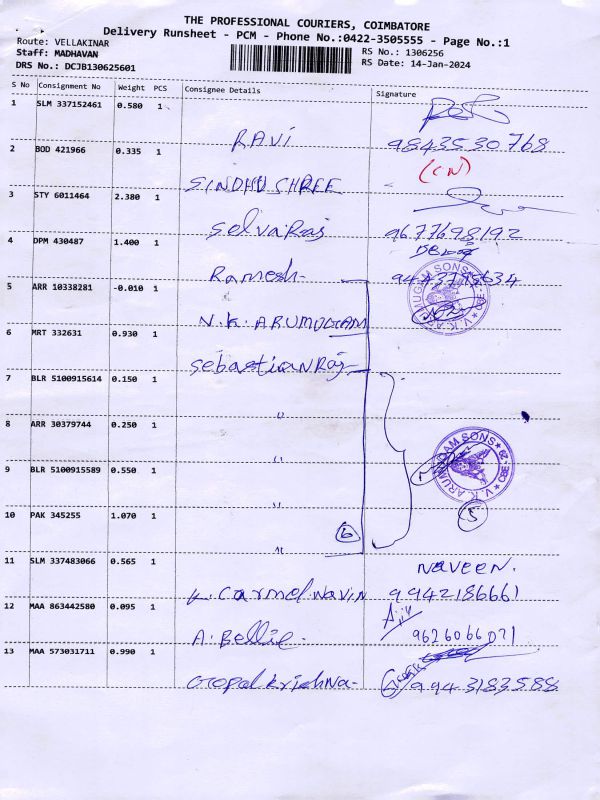 THE PROFESSIONAL COURIERS, COIMBATORE
Delivery Runsheet - PCM - Phone No.:0422-3505555 - Page No.:1
Route: VELLAKINAR
Staff: MADHAVAN
DRS No.: DCJB130625601
RS No.: 1306256
RS Date: 14-Jan-2024
S No Consignment No Weight PCS Consignee Details Signature
1 SLM 337152461 0.580 1
RAVi 9843530768
2 BOD 421966 0.335 1
(CN)
SINDHU SHREE
3 STY 6011464 2.380 1
SelvaRaj 9677698192
4 DPM 430487 1.400 1
Ramesh
5 ARR 10338281 -0.010 1
N.K. ARUMUGAM
V.K. ARUMUGAM SONS CBE
6 MRT 332631 0.930 1
SebastianRaj
7 BLR 5100915614 0.150 1
"
8 ARR 30379744 0.250 1
"
V.K. ARUMUGAM SONS CBE-29
9 BLR 5100915589 0.550 1
"
5
10 PAK 345255 1.070 1
6
"
11 SLM 337483066 0.565 1
NAVEEN.
K. Carmel Navin 9942186661
12 MAA 863442580 0.095 1
A. Bellie 9626066071
13 MAA 573031711 0.990 1
Gopal krishna 9943183588